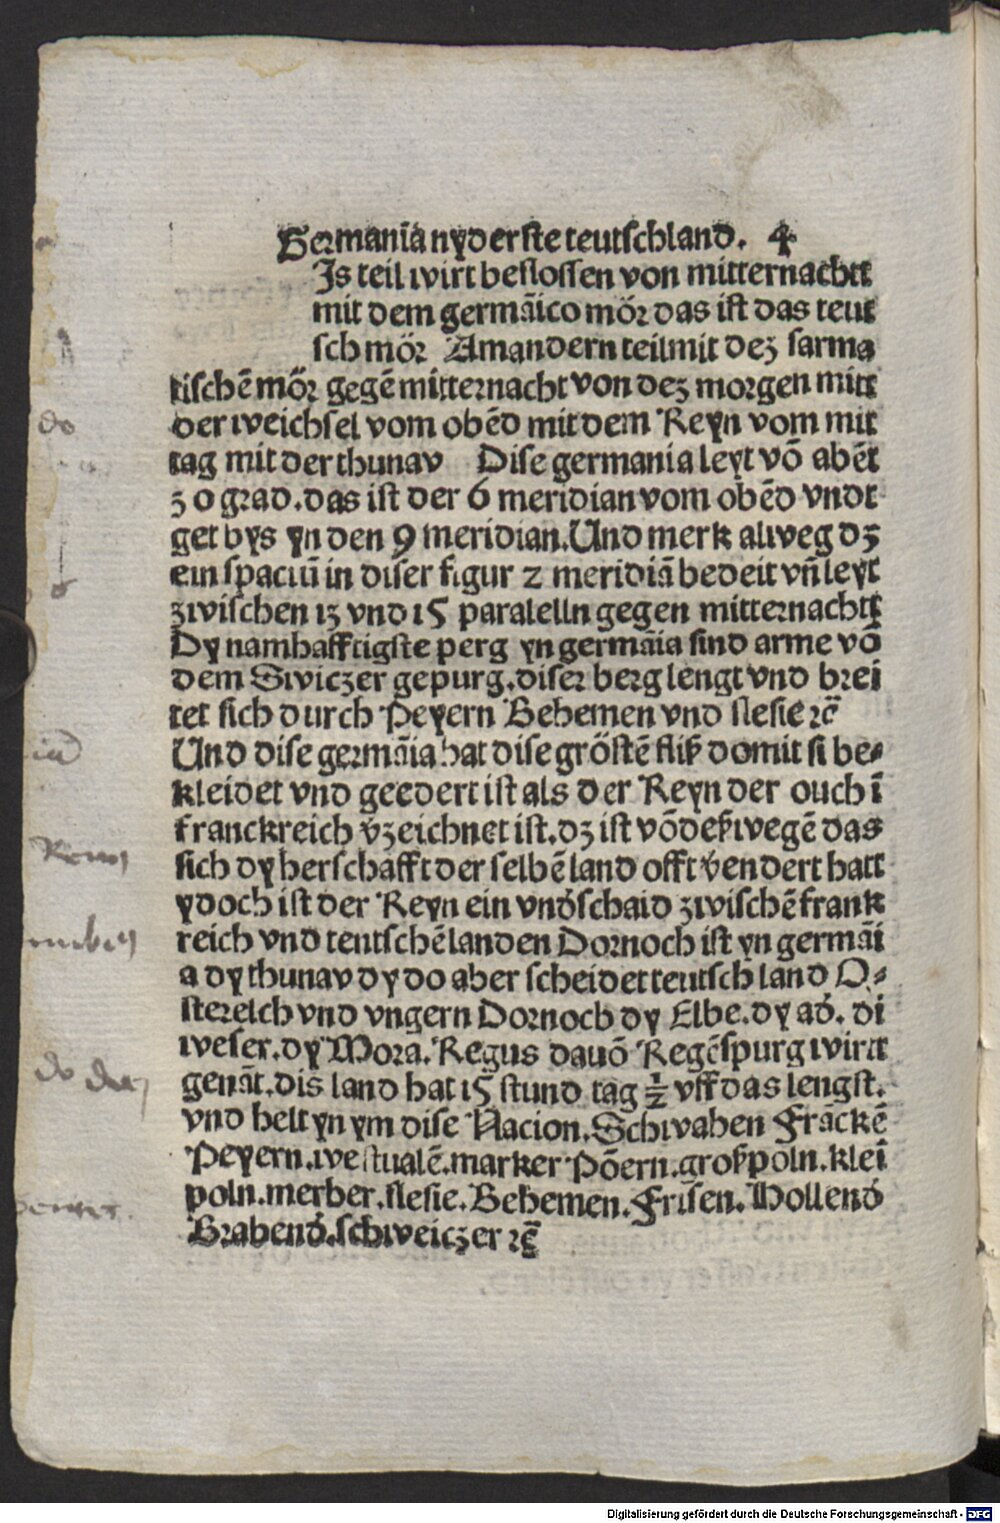 Germanīa nyderste teutschland. 4
Is teil wirt beslossen von mitternachtt
mit dem germāico mör das ist das teut
sch mör Amandern teilmit dez sarma
tischē mör gegē mitternacht von dez morgen mitt
der weichsel vom obēd mit dem Reyn vom mit
tag mit der thunav Dise germania leyt vō abēt
30 grad. das ist der 6 meridian vom obēd vndt
get bys yn den 9 meridian. Und merk alweg dz
ein spaciū in diser figur 2 meridiā bedeit vn̄ leyt
zwischen 13 vnd 15 paralelln gegen mitternachtt
Dy namhafftigste perg yn germāia sind arme vō
dem Swiczer gepurg. diser berg lengt vnd brei
tet sich durch Peyern Behemen vnd slesie ꝛc̄
Und dise germāia hat dise gröstē fliß domit si be⸗
kleidet vnd geedert ist als der Reyn der ouch ī
franckreich v̄zeichnet ist. dz ist vō deßwegē das
sich dy herschafft der selbē land offt v̄endert hatt
ydoch ist der Reyn ein vndschaid zwischē frank
reich vnd teutschē landen Dornoch ist yn germāi
a dy thunav dy do aber scheidet teutsch land O⸗
sterelch vnd vngern Dornoch dy Elbe. dy ad. di
weser. dy Mora. Regus davō Regēspurg wirtt
genāt. dis land hat 15 stund tag ½ vff das lengst.
vnd helt yn ym dise Nacion. Schwaben Frāckē
Peyern. westualē. marker Pōern. großpoln. klei
poln. merher. slesie. Behemen. Frisen. Hollend
Brabend. schweiczer ꝛc̄
do
do der
Digitalisierung gefördert durch die Deutsche Forschungsgemeinschaft - DFG